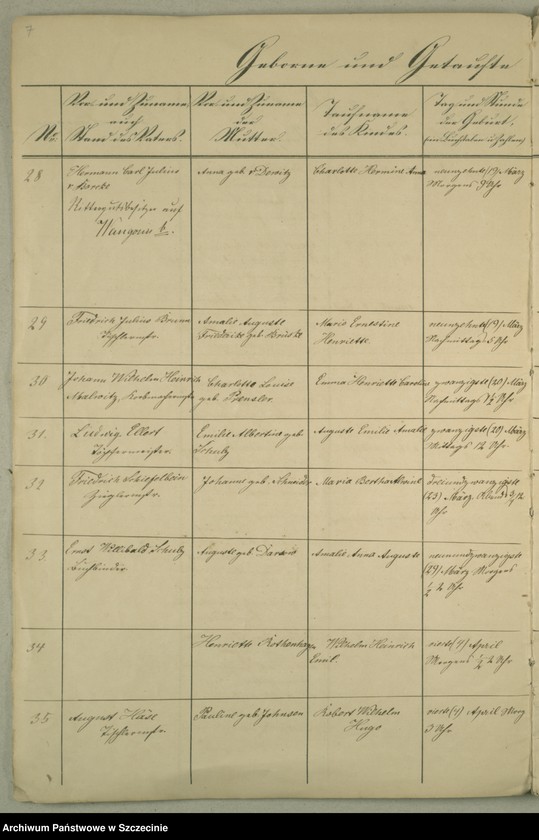 7
Geborne und Getaufte
No.
Vor- und Zuname
auch
Stand des Vaters.
Vor- und Zuname
der
Mutter.
Taufname
des Kindes.
Tag und Stunde
der Geburt.
(in Buchstaben u Zahlen)
28
Hermann Carl Julius
v Borcke
Rittergutsbesitzer auf
Wangerin b.
Anna geb. v Dewitz
Charlotte Hermine Anna
neunzehnte (19) März
Morgens 9 Uhr
29
Friedrich Julius
Tischlermstr.
Amalie Auguste
Friederike geb.
Marie Ernestine
Henriette.
neunzehnte (19) März
Nachmittags 5 Uhr
30
Johann Wilhelm Heinrich
Charlotte Louise
geb.
Emma Henriette Caroline
zwanzigste (20) März
Nachmittags Uhr
31.
Ludwig Ellert
Tischlermeister.
Emilie Albertine geb
Schultz
Auguste Emilie Amalie
März
Mittags 12 Uhr
32
Friedrich
Zieglermstr.
Johanne geb. Schneider
Maria Bertha
dreiundzwanzigste
(23) März Abends
Uhr
33.
Ernst Willibald Schultz
Buchbinder.
Auguste geb
Amalie Anna Auguste
neunundzwanzigste
(29) März Morgens
½ 2 Uhr
34
Henriette Rothenhagen
Wilhelm Heinrich
Emil.
April
Morgens ½ 2 Uhr
35
August Häse
Tischlermstr.
Pauline geb. Johnson
Robert Wilhelm
Hugo
vierte (4) April Morg
3 Uhr
Archiwum Państwowe w Szczecinie